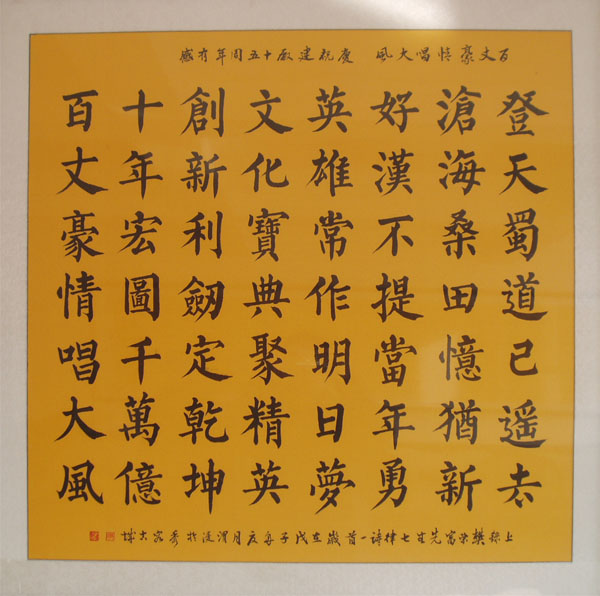 百丈豪情唱大風 慶祝建廠十五周年有感
登天蜀道已遥去
滄海桑田憶猶新
好漢不提當年勇
英雄常作明日夢
文化寶典聚精英
創新利劒定乾坤
十年宏圖千萬億
百丈豪情唱大風
上錄樊富先生七律詩一首歲在戊子年夏月於